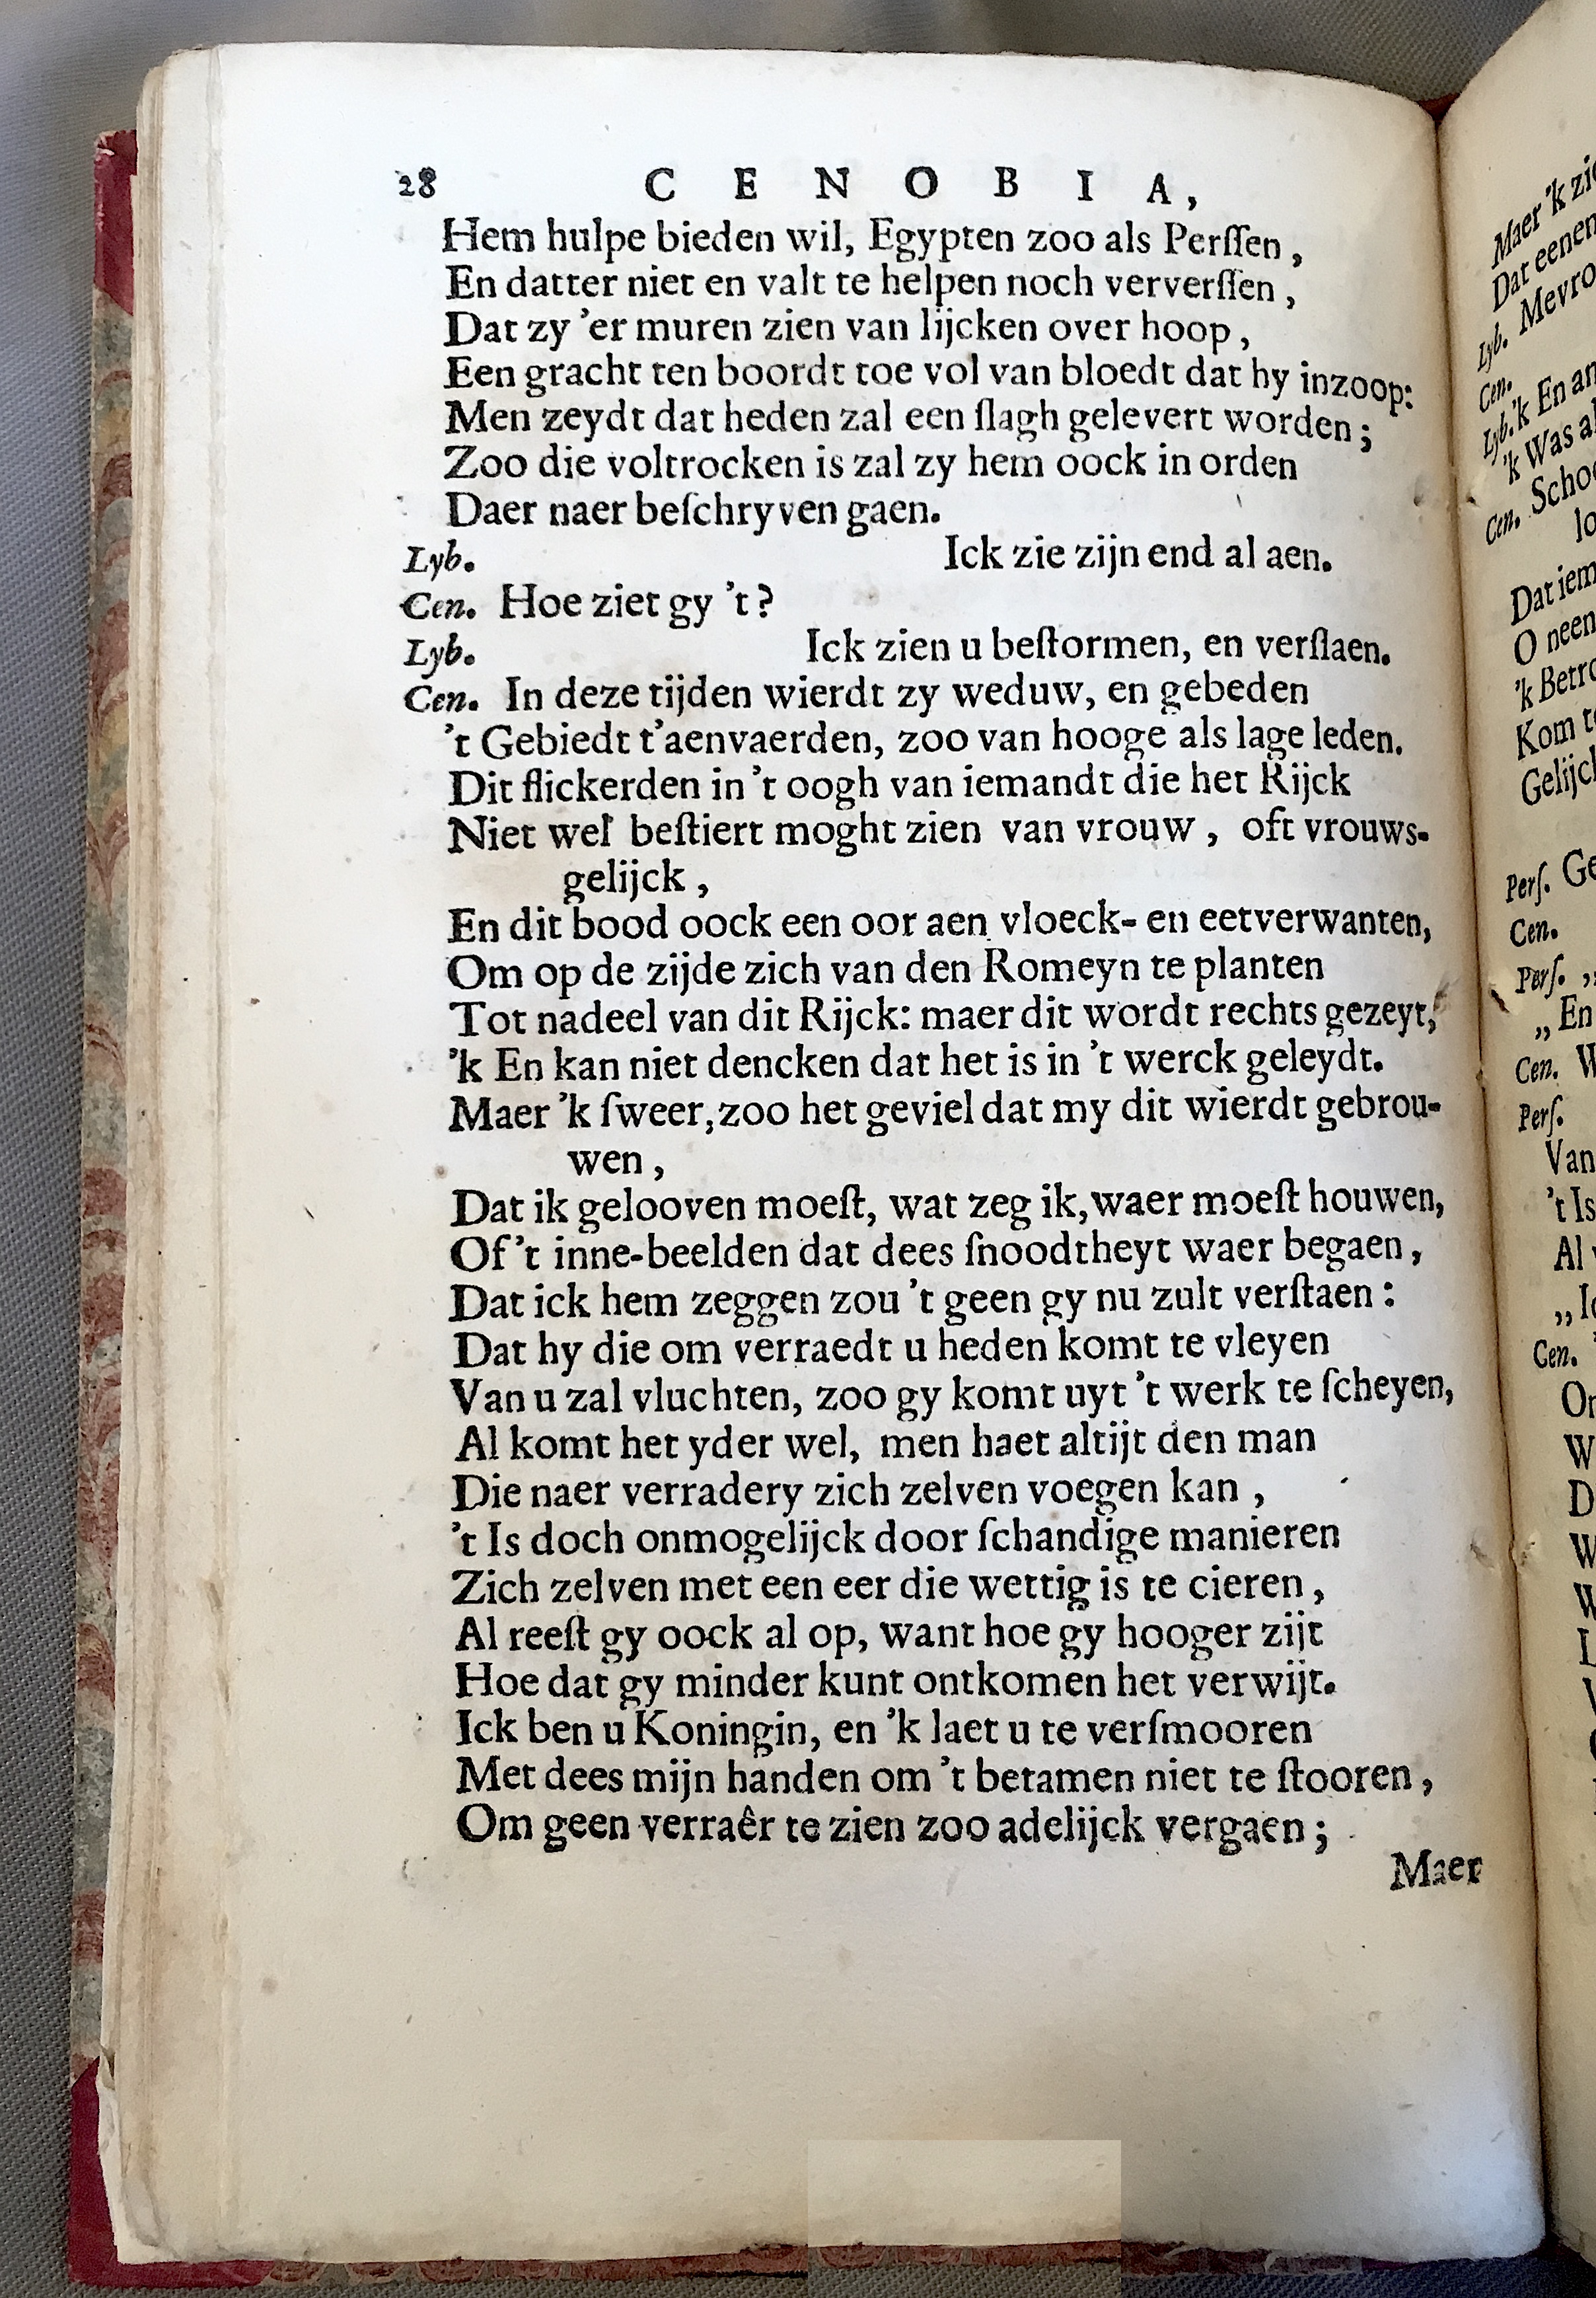 28 CENOBIA,
Hem hulpe bieden wil, Egypten zoo als Perſſen,
En datter niet en valt te helpen noch ververſſen,
Dat zy 'er muren zien van lijcken over hoop,
Een gracht ten boordt toe vol van bloedt dat hy inzoop:
Men zeydt dat heden zal een ſlagh gelevert worden;
Zoo die voltrocken is zal zy hem oock in orden
Daer naer beſchryven gaen.
Lyb. Ick zie zijn end al aen.
Cen. Hoe ziet gy 't?
Lyb. Ick zien u beſtormen, en verſlaen.
Cen. In deze tijden wierdt zy weduw, en gebeden
't Gebiedt t'aenvaerden, zoo van hooge als lage leden.
Dit flickerden in 't oogh van iemandt die het Rijck
Niet wel beſtiert moght zien van vrouw, oft vrouws-
gelijck,
En dit bood oock een oor aen vloeck- en eetverwanten,
Om op de zijde zich van den Romeyn te planten
Tot nadeel van dit Rijck: maer dit wordt rechts gezeyt,
'k En kan niet dencken dat het is in 't werck geleydt.
Maer 'k ſweer, zoo het geviel dat my dit wierdt gebrou-
wen,
Dat ik gelooven moeſt, wat zeg ik, waer moeſt houwen,
Of 't inne-beelden dat dees ſnoodtheyt waer begaen,
Dat ick hem zeggen zou 't geen gy nu zult verſtaen:
Dat hy die om verraedt u heden komt te vleyen
Van u zal vluchten, zoo gy komt uyt 't werk te ſcheyen,
Al komt het yder wel, men haet altijt den man
Die naer verradery zich zelven voegen kan,
't Is doch onmogelijck door ſchandige manieren
Zich zelven met een eer die wettig is te cieren,
Al reeſt gy oock al op, want hoe gy hooger zijt
Hoe dat gy minder kunt ontkomen het verwijt.
Ick ben u Koningin, en 'k laet u te verſmooren
Met dees mijn handen om 't betamen niet te ſtooren,
Om geen verraêr te zien zoo adelijck vergaen;
Maer
Maer 'k
Dat eenen
Lyb.
Cen.
Lyb. 'k En
'k Was
Cen.
Dat
O neen
'k
Kom
Perſ.
Cen.
Perſ. „
„ En
Cen.
Perſ.
Van
't Is
Al
„
Cen.